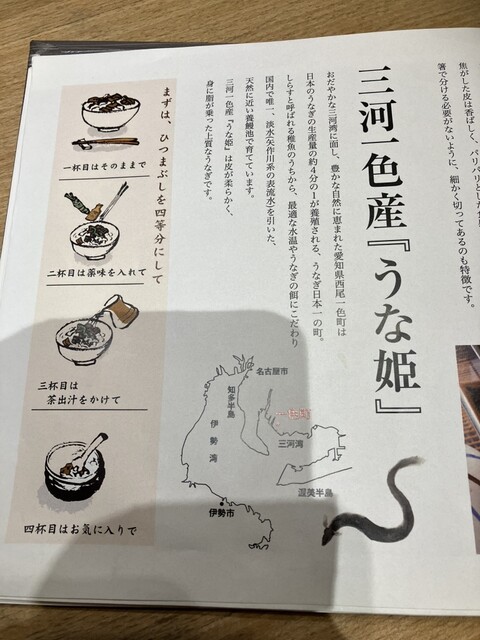 焦がした皮は香ばしく、パリパリとした
箸で分ける必要がないように、細かく切ってあるのも特徴です。
三河一色産『うな姫』
おだやかな三河湾に面し、豊かな自然に恵まれた愛知県西尾一色町は
日本のうなぎの生産量の約4分の1が養殖される、うなぎ日本一の町。
しらすと呼ばれる稚魚のうちから、最適な水温やうなぎの餌にこだわり
国内で唯一、淡水(矢作川系の表流水)を引いた、
天然に近い養鰻池で育てています。
三河一色産『うな姫』は皮が柔らかく、
身に脂が乗った上質なうなぎです。
名古屋市
知多半島
伊勢湾
一色町
三河湾
渥美半島
伊勢市
まずは、ひつまぶしを四等分にして
一杯目はそのままで
二杯目は薬味を入れて
三杯目は
茶出汁をかけて
四杯目はお気に入りで